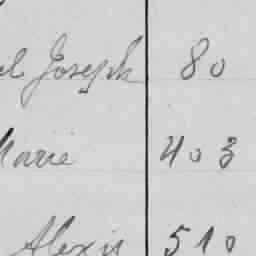 el Joseph 80
Marie 403
Alexis 510